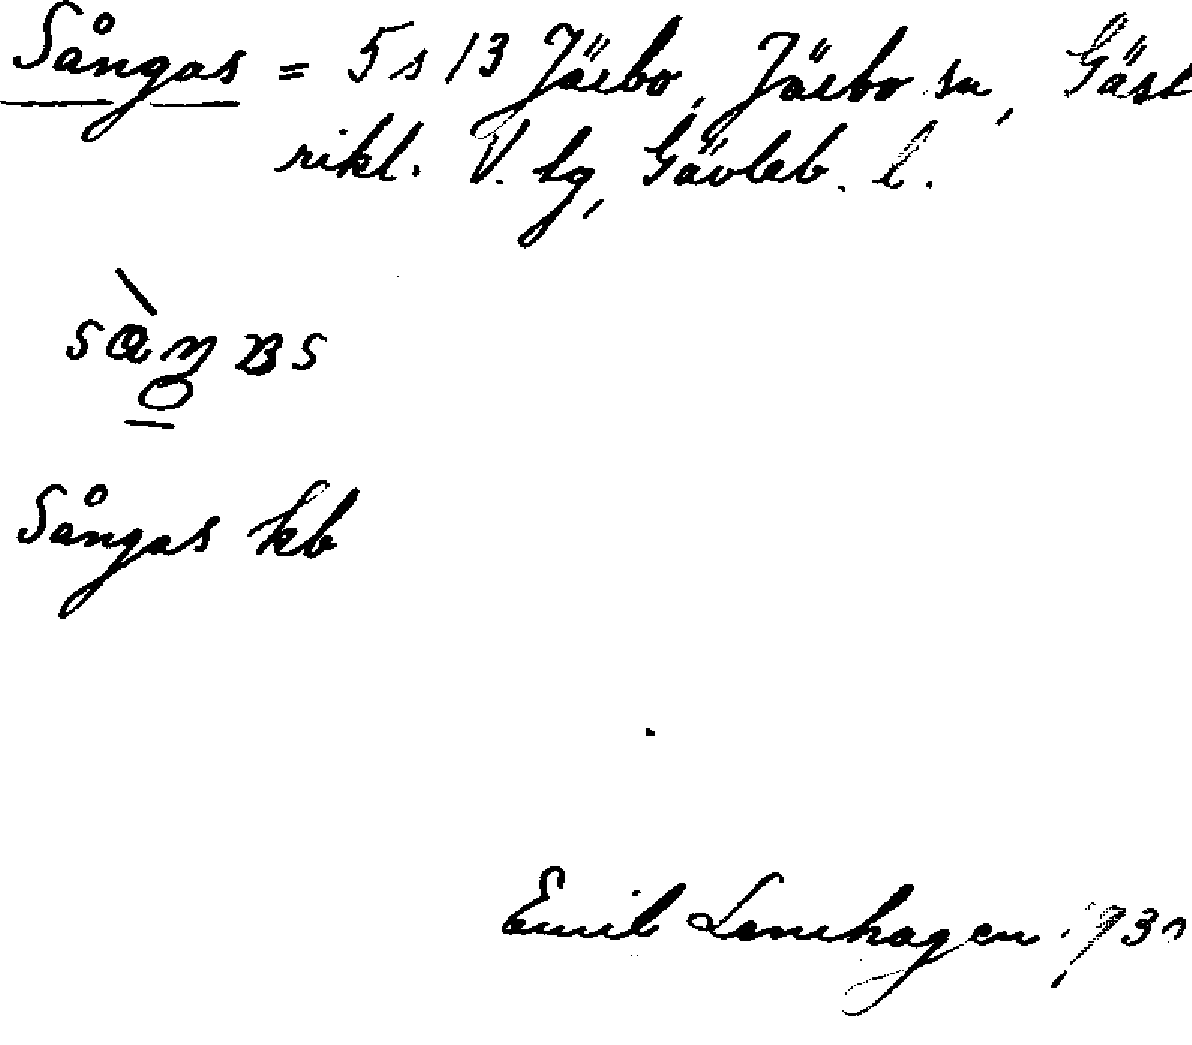 Sångas = 5 s 13 Järbo, Järbo sn, Gäst
rikl. V. tg, Gävleb. l.
Sångas kb
Emil Lamhagen 193